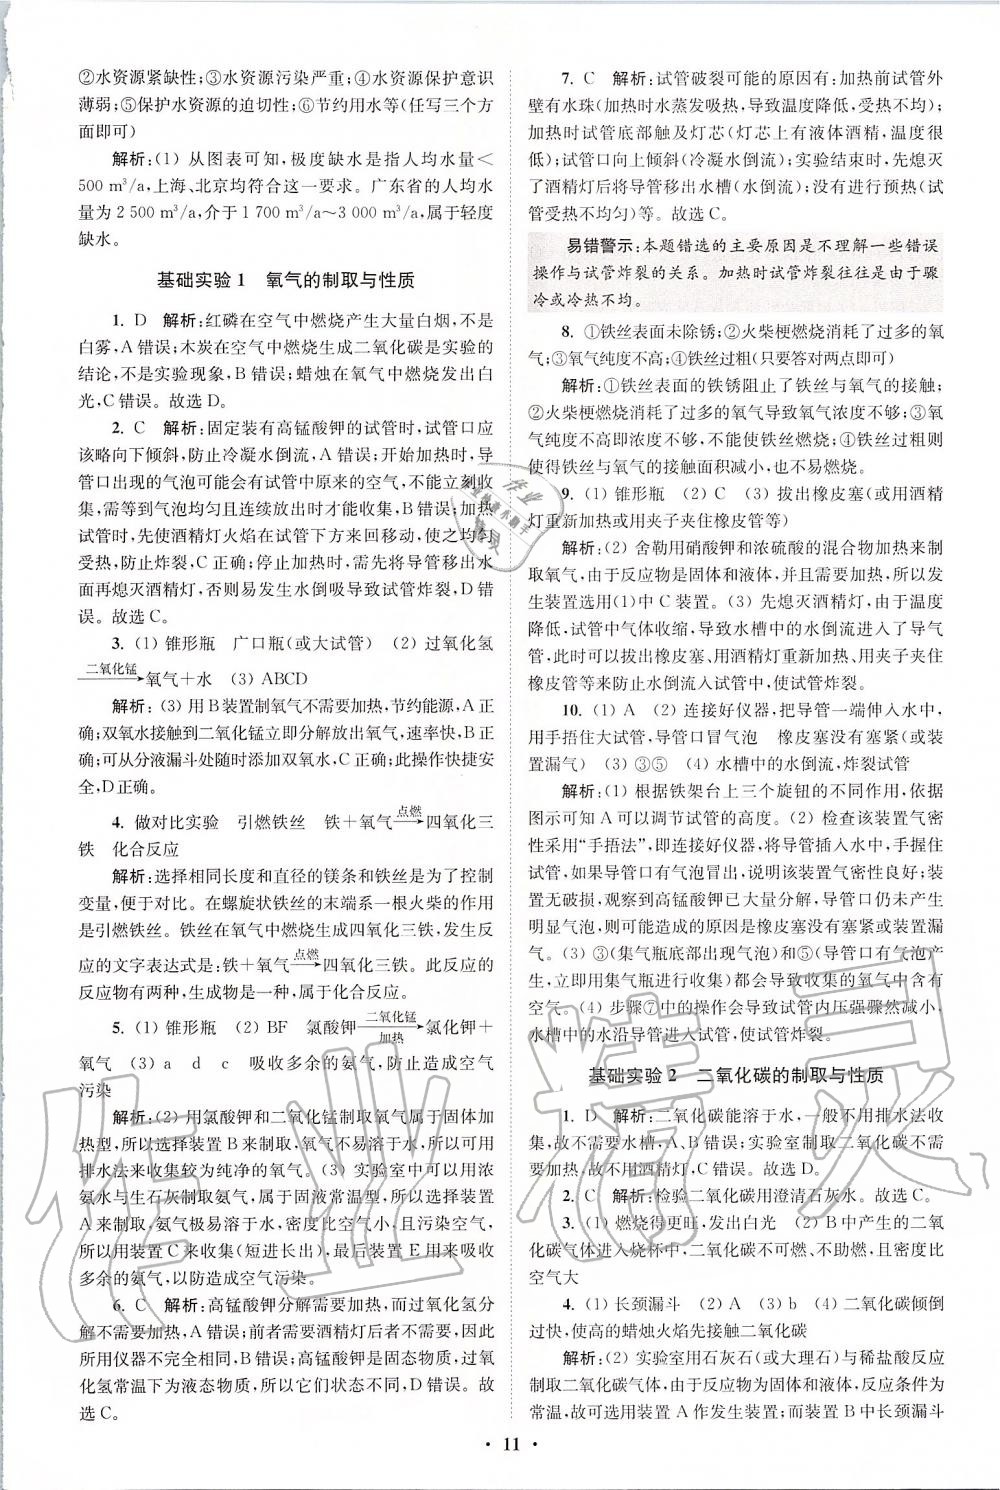 ②水资源紧缺性;③水资源污染严重;④水资源保护意识
薄弱;⑤保护水资源的迫切性;⑥节约用水等(任写三个方
面即可)
解析:(1) 从图表可知,极度缺水是指人均水量<
500 m³/a,上海、北京均符合这一要求。广东省的人均水
量为 2 500 m³/a,介于 1 700 m³/a~3 000 m³/a,属于轻度
缺水。
基础实验 1 氧气的制取与性质
1. D 解析:红磷在空气中燃烧产生大量白烟,不是
白雾,A 错误;木炭在空气中燃烧生成二氧化碳是实验的
结论,不是实验现象,B 错误;蜡烛在氧气中燃烧发出白
光,C 错误。故选 D。
2. C 解析:固定装有高锰酸钾的试管时,试管口应
该略向下倾斜,防止冷凝水倒流,A 错误;开始加热时,导
管口出现的气泡可能会有试管中原来的空气,不能立刻收
集,需等到气泡均匀且连续放出时才能收集,B 错误;加热
试管时,先使酒精灯火焰在试管下方来回移动,使之均匀
受热,防止炸裂,C 正确;停止加热时,需先将导管移出水
面再熄灭酒精灯,否则易发生水倒吸导致试管炸裂,D 错
误。故选 C。
3. (1) 锥形瓶 广口瓶(或大试管) (2) 过氧化氢
二氧化锰→氧气+水 (3) ABCD
解析:(3) 用 B 装置制氧气不需要加热,节约能源,A 正
确;双氧水接触到二氧化锰立即分解放出氧气,速率快,B 正
确;可从分液漏斗处随时添加双氧水,C 正确;此操作快捷安
全,D 正确。
4. 做对比实验 引燃铁丝 铁+氧气点燃→四氧化三
铁 化合反应
解析:选择相同长度和直径的镁条和铁丝是为了控制
变量,便于对比。在螺旋状铁丝的末端系一根火柴的作用
是引燃铁丝。铁丝在氧气中燃烧生成四氧化三铁,发生反
应的文字表达式是:铁+氧气点燃→四氧化三铁。此反应的
反应物有两种,生成物是一种,属于化合反应。
5. (1) 锥形瓶 (2) BF 氯酸钾二氧化锰→加热氯化钾+
氧气 (3) a d c 吸收多余的氨气,防止造成空气
污染
解析:(2) 用氯酸钾和二氧化锰制取氧气属于固体加
热型,所以选择装置 B 来制取,氧气不易溶于水,所以可用
排水法来收集较为纯净的氧气。(3) 实验室中可以用浓
氨水与生石灰制取氨气,属于固液常温型,所以选择装置
A 来制取,氨气极易溶于水,密度比空气小,且污染空气,
所以用装置 C 来收集(短进长出),最后装置 E 用来吸收
多余的氨气,以防造成空气污染。
6. C 解析:高锰酸钾分解需要加热,而过氧化氢分
解不需要加热,A 错误;前者需要酒精灯后者不需要,因此
所用仪器不完全相同,B 错误;高锰酸钾是固态物质,过氧
化氢常温下为液态物质,所以它们状态不同,D 错误。故
选 C。
7. C 解析:试管破裂可能的原因有:加热前试管外
壁有水珠(加热时水蒸发吸热,导致温度降低,受热不均);
加热时试管底部触及灯芯(灯芯上有液体酒精,温度很
低);试管口向上倾斜(冷凝水倒流);实验结束时,先熄灭
了酒精灯后将导管移出水槽(水倒流);没有进行预热(试
管受热不均匀)等。故选 C。
易错警示:本题错选的主要原因是不理解一些错误
操作与试管炸裂的关系。加热时试管炸裂往往是由于骤
冷或冷热不均。
8. ①铁丝表面未除锈;②火柴梗燃烧消耗了过多的氧
气;③氧气纯度不高;④铁丝过粗(只要答对两点即可)
解析:①铁丝表面的铁锈阻止了铁丝与氧气的接触;
②火柴梗燃烧消耗了过多的氧气导致氧气浓度不够;③氧
气纯度不高即浓度不够,不能使铁丝燃烧;④铁丝过粗则
使得铁丝与氧气的接触面积减小,也不易燃烧。
9. (1) 锥形瓶 (2) C (3) 拔出橡皮塞(或用酒精
灯重新加热或用夹子夹住橡皮管等)
解析:(2) 舍勒用硝酸钾和浓硫酸的混合物加热来制
取氧气,由于反应物是固体和液体,并且需要加热,所以发
生装置选用(1)中 C 装置。(3) 先熄灭酒精灯,由于温度
降低,试管中气体收缩,导致水槽中的水倒流进入了导气
管,此时可以拔出橡皮塞、用酒精灯重新加热、用夹子夹住
橡皮管等来防止水倒流入试管中,使试管炸裂。
10. (1) A (2) 连接好仪器,把导管一端伸入水中,
用手捂住大试管,导管口冒气泡 橡皮塞没有塞紧(或装
置漏气) (3) ③⑤ (4) 水槽中的水倒流,炸裂试管
解析:(1) 根据铁架台上三个旋钮的不同作用,依据
图示可知 A 可以调节试管的高度。(2) 检查该装置气密
性采用“手捂法”,即连接好仪器,将导管插入水中,手握住
试管,如果导管口有气泡冒出,说明该装置气密性良好;装
置无破损,观察到高锰酸钾已大量分解,导管口仍未产生
明显气泡,则可能的原因是橡皮塞没有塞紧或装置漏
气。(3) ③(集气瓶底部出现气泡)和⑤(导管口有气泡产
生,立即用集气瓶进行收集)都会导致收集的氧气中含有
空气。(4) 步骤⑦中的操作会导致试管内压强骤然减小,
水槽中的水沿导管进入试管,使试管炸裂。
基础实验 2 二氧化碳的制取与性质
1. D 解析:二氧化碳能溶于水,一般不用排水法收
集,故不需要水槽,A、B 错误;实验室制取二氧化碳不需
要加热,故不用酒精灯,C 错误。故选 D。
2. C 解析:检验二氧化碳用澄清石灰水。故选 C。
3. (1) 燃烧得更旺,发出白光 (2) B 中产生的二氧
化碳气体进入烧杯中,二氧化碳不可燃、不助燃,且密度比
空气大
4. (1) 长颈漏斗 (2) A (3) b (4) 二氧化碳倾倒
过快,使高的蜡烛火焰先接触二氧化碳
解析:(2) 实验室用石灰石(或大理石)与稀盐酸反应
制取二氧化碳气体,由于反应物为固体和液体,反应条件为
常温,故可选用装置 A 作发生装置;而装置 B 中长颈漏斗
• 11 •
作业精灵